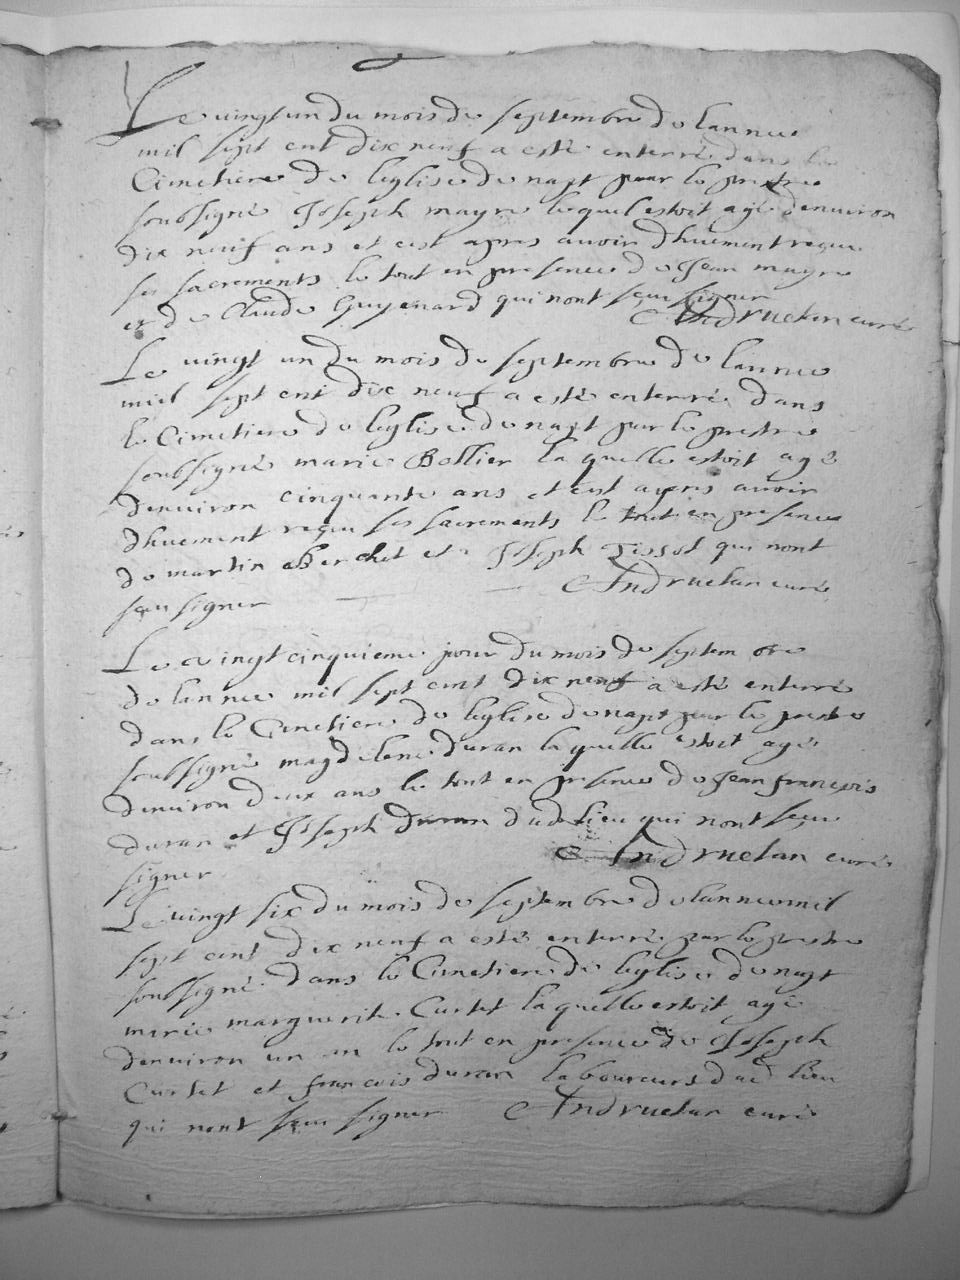 Le vingt un du mois de septembre de lannee
mil sept cent dix neuf a esté enterré dans le
Cimetiere de leglise de napt par le prestre
soubsigné Joseph mayre lequel estoit agé denviron
dix neuf ans et cest apres avoir dhuement reçeu
ses sacrements le tout en presence de Jean mayre
et de Claude Guyenard qui nont sçeu signer
Andruetan curé
Le vingt un du mois de septembre de lannee
mil sept cent dix neuf a esté enterré dans
le Cimetiere de leglise de napt par le prestre
soubsigné marie Bollier la quelle estoit agé
denviron cinquante ans et cest apres avoir
dhuement reçeu ses sacrements le tout en presence
de martin Berchet et Joseph Tissot qui nont
sçeu signer Andruetan curé
Le vingt cinquieme jour du mois de septembre
de lannee mil sept cent dix neuf a esté enterré
dans le Cimetiere de leglise de napt par le prestre
soubsigné magdelene duran la quelle estoit agé
denviron deux ans le tout en presence de Jean françois
duran et Joseph duran dud lieu qui nont sçeu
signer Andruetan curé
Le vingt six du mois de septembre de lannee mil
sept cent dix neuf a esté enterré par le prestre
soubsigné dans le Cimetiere de leglise de napt
marie marguerite Curtet la quelle estoit agé
denviron un an le tout en presence de Joseph
Curtet et francois duran laboureurs dud lieu
qui nont sçeu signer Andruetan curé